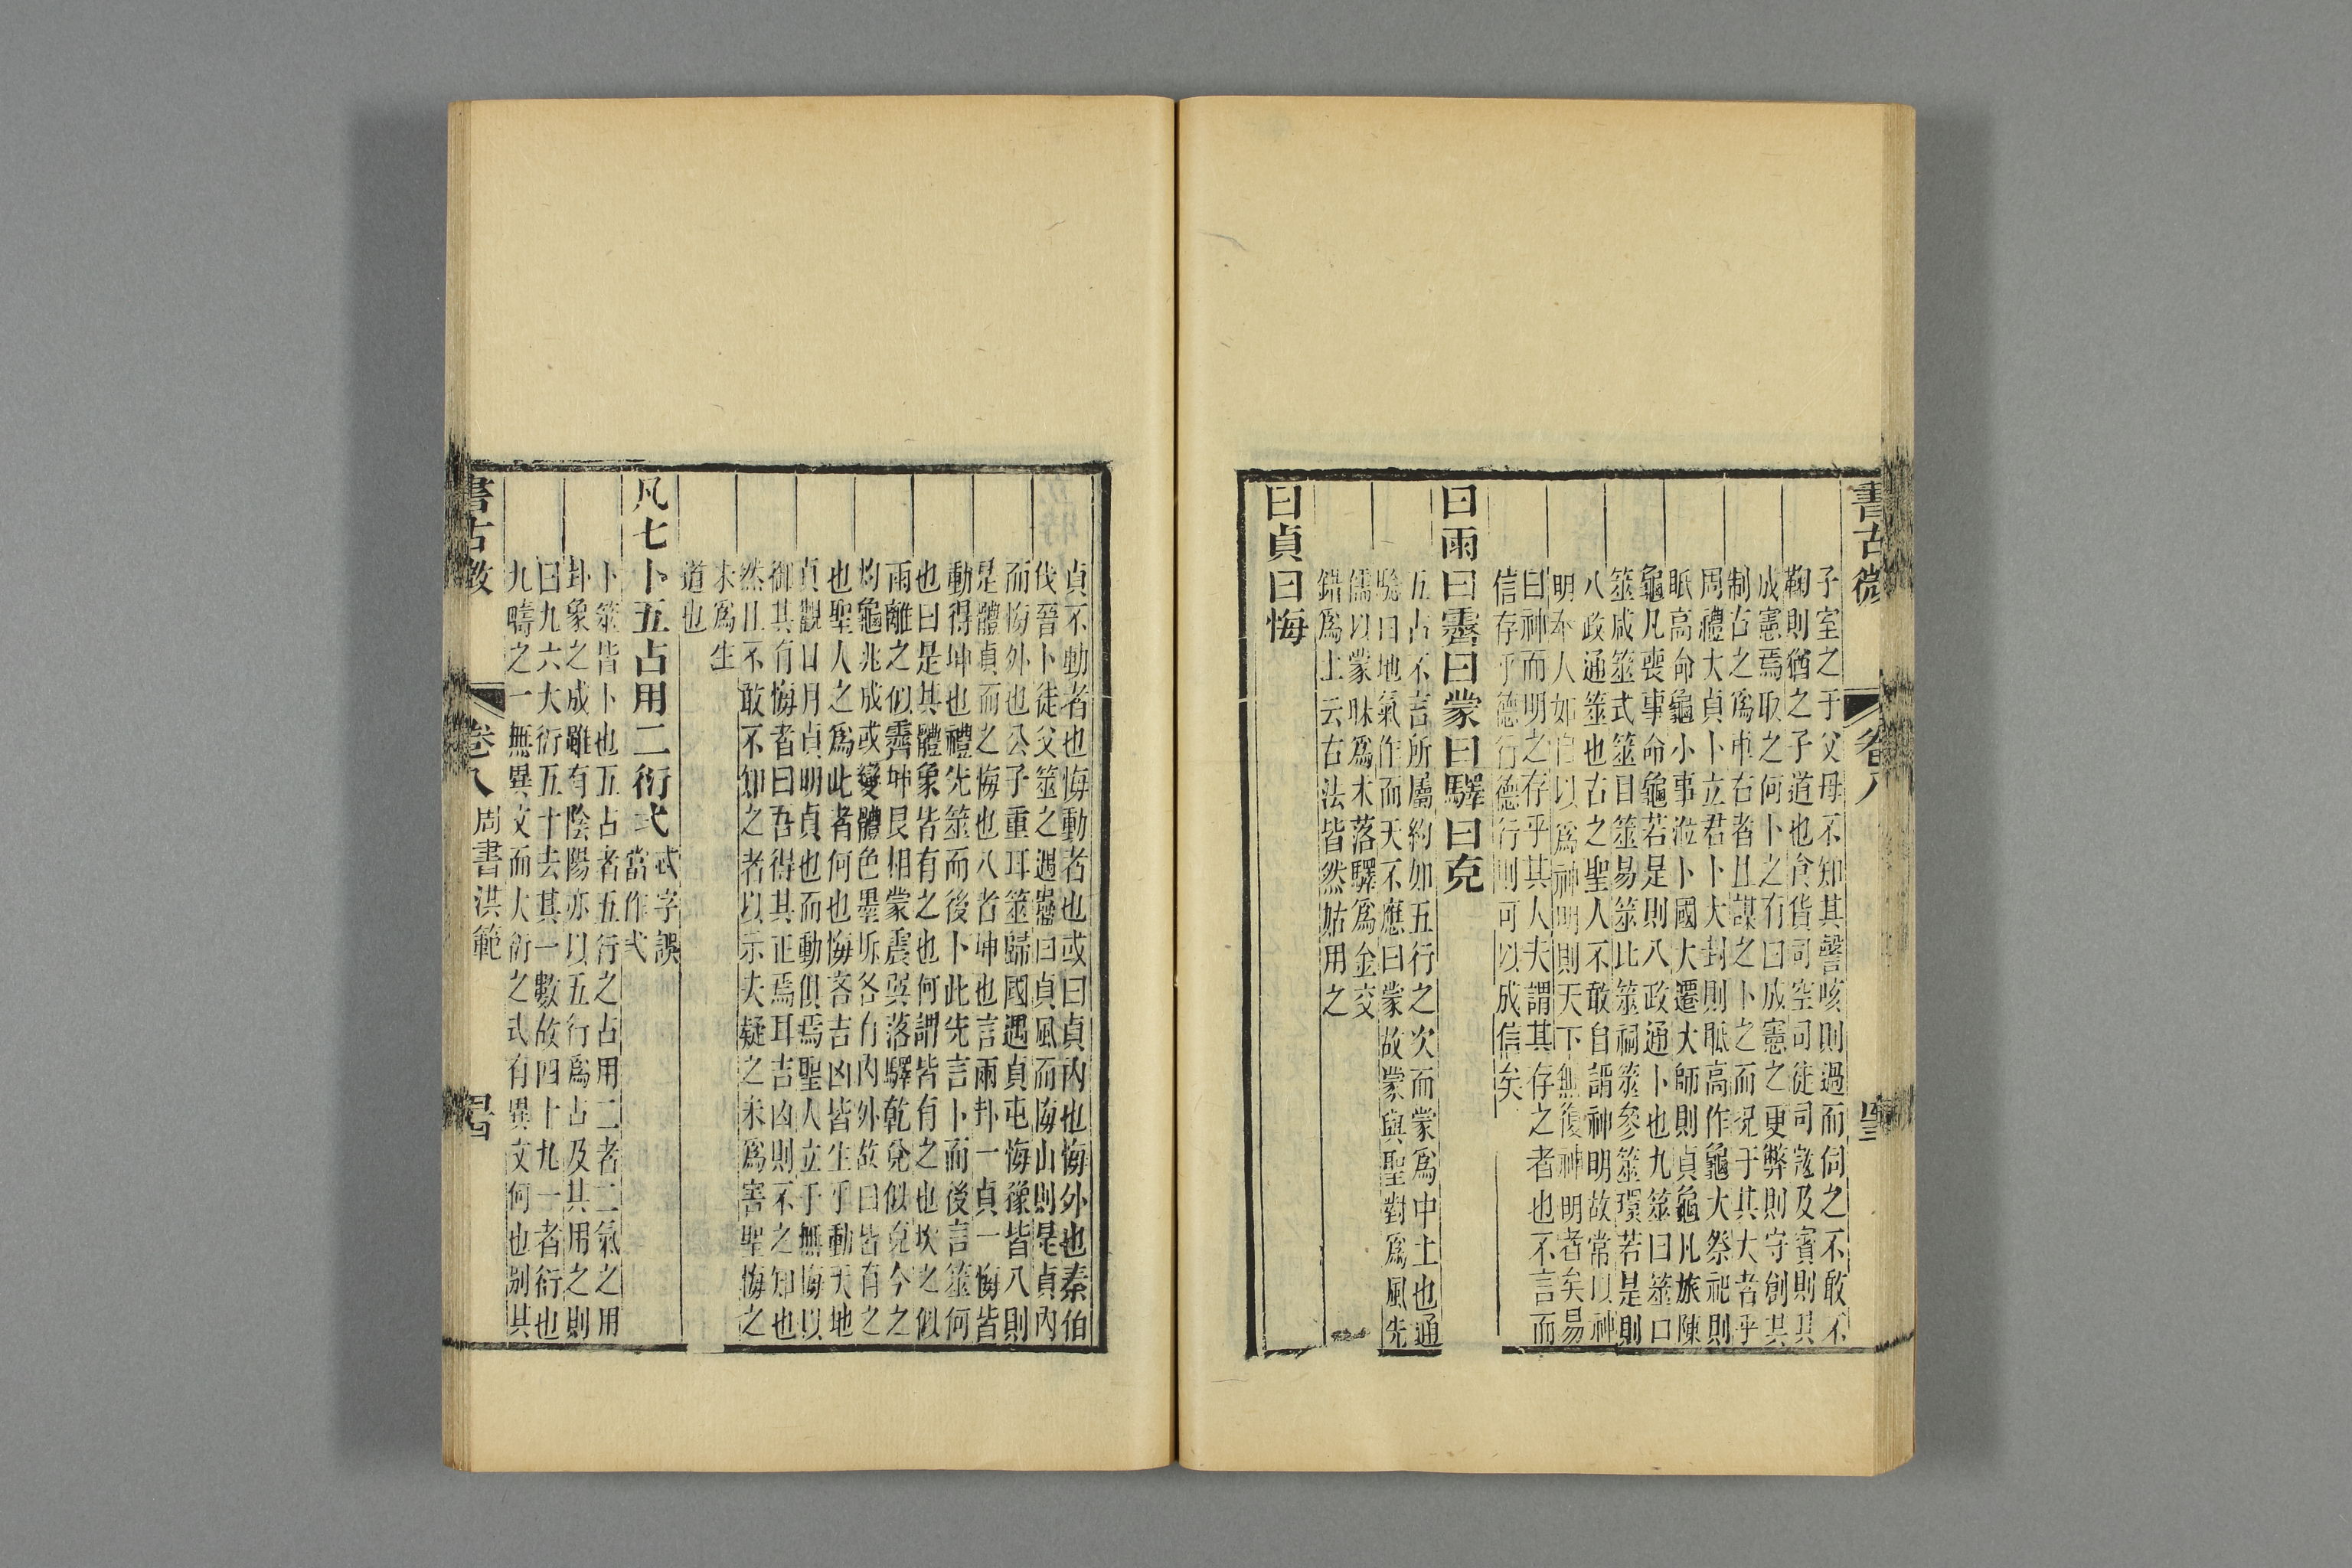 書古微
卷八
子室之于父母不知其謦咳則過而伺之不敢不
鞠則猶之子道也食貨司空司徒司寇及賓則其
成憲焉取之何卜之有曰成憲之更弊則守創其
制右之爲車右者且謀之卜之而況于其大者乎
周禮大貞卜立君卜大封則眡高作龜大祭祀則
眂高命龜小事涖卜國大遷大師則貞龜凡旅陳
龜凡喪事命龜龜若是則八政通卜也九筮曰筮口
筮咸筮式筮目筮易筮比筮祠筮參筮環若是則
八政通筮也古之聖人不敢自謂神明故常以神
明奉人如自以爲神明則天下無復神明者矣易
曰神而明之存乎其人夫謂其存之者也不言而
信存乎德行德行則可以成信矣
曰雨曰霽曰蒙曰驛曰克
五占不言所屬約如五行之次而蒙爲中土也通
驗曰地氣作而天不應曰蒙故蒙與聖對爲風先
儒以蒙昧爲木落驛爲金交
錯爲土云右法皆然姑用之
曰貞曰悔
貞不動者也悔動者也或曰貞內也悔外也秦伯
伐晉卜徒父筮之遇蠱曰貞風而悔山則是貞內
而悔外也公子重耳筮歸國遇貞屯悔豫皆八則
是體貞而之悔也八者坤也言兩卦一貞一悔皆
動得坤也禮先筮而後卜此先言卜而後言筮何
也曰是其體象皆有之也何謂皆有之也坎之似
雨離之似霽坤艮相蒙震巽落驛乾兌似克今之
均龜兆成或變體色墨坼各有內外故曰皆有之
也聖人之爲此者何也悔吝吉凶皆生乎動天地
貞觀日月貞明貞也而動俱焉聖人立于無悔以
御其有悔者曰吾得其正焉耳吉凶則不之知也
然且不敢不知之者以示夫疑之未爲害聖悔之
未爲生
道也
凡七卜五占用二衍弌
弌字誤
當作弍
卜筮皆卜也五占者五行之占用二者二氣之用
卦象之成雖有陰陽亦以五行爲占及其用之則
曰九六大衍五十去其一數故四十九一者衍也
九疇之一無異文而大衍之弌有異文何也别其
卷八
周書洪範